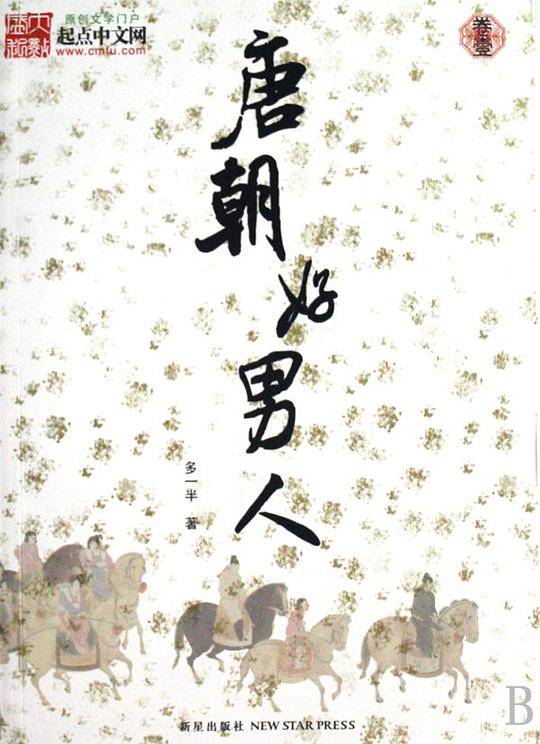 原创文学门户
起点中文网
www.cmfu.com
卷壹
唐朝好男人
多一半 著
新星出版社 NEW STAR PRESS
B